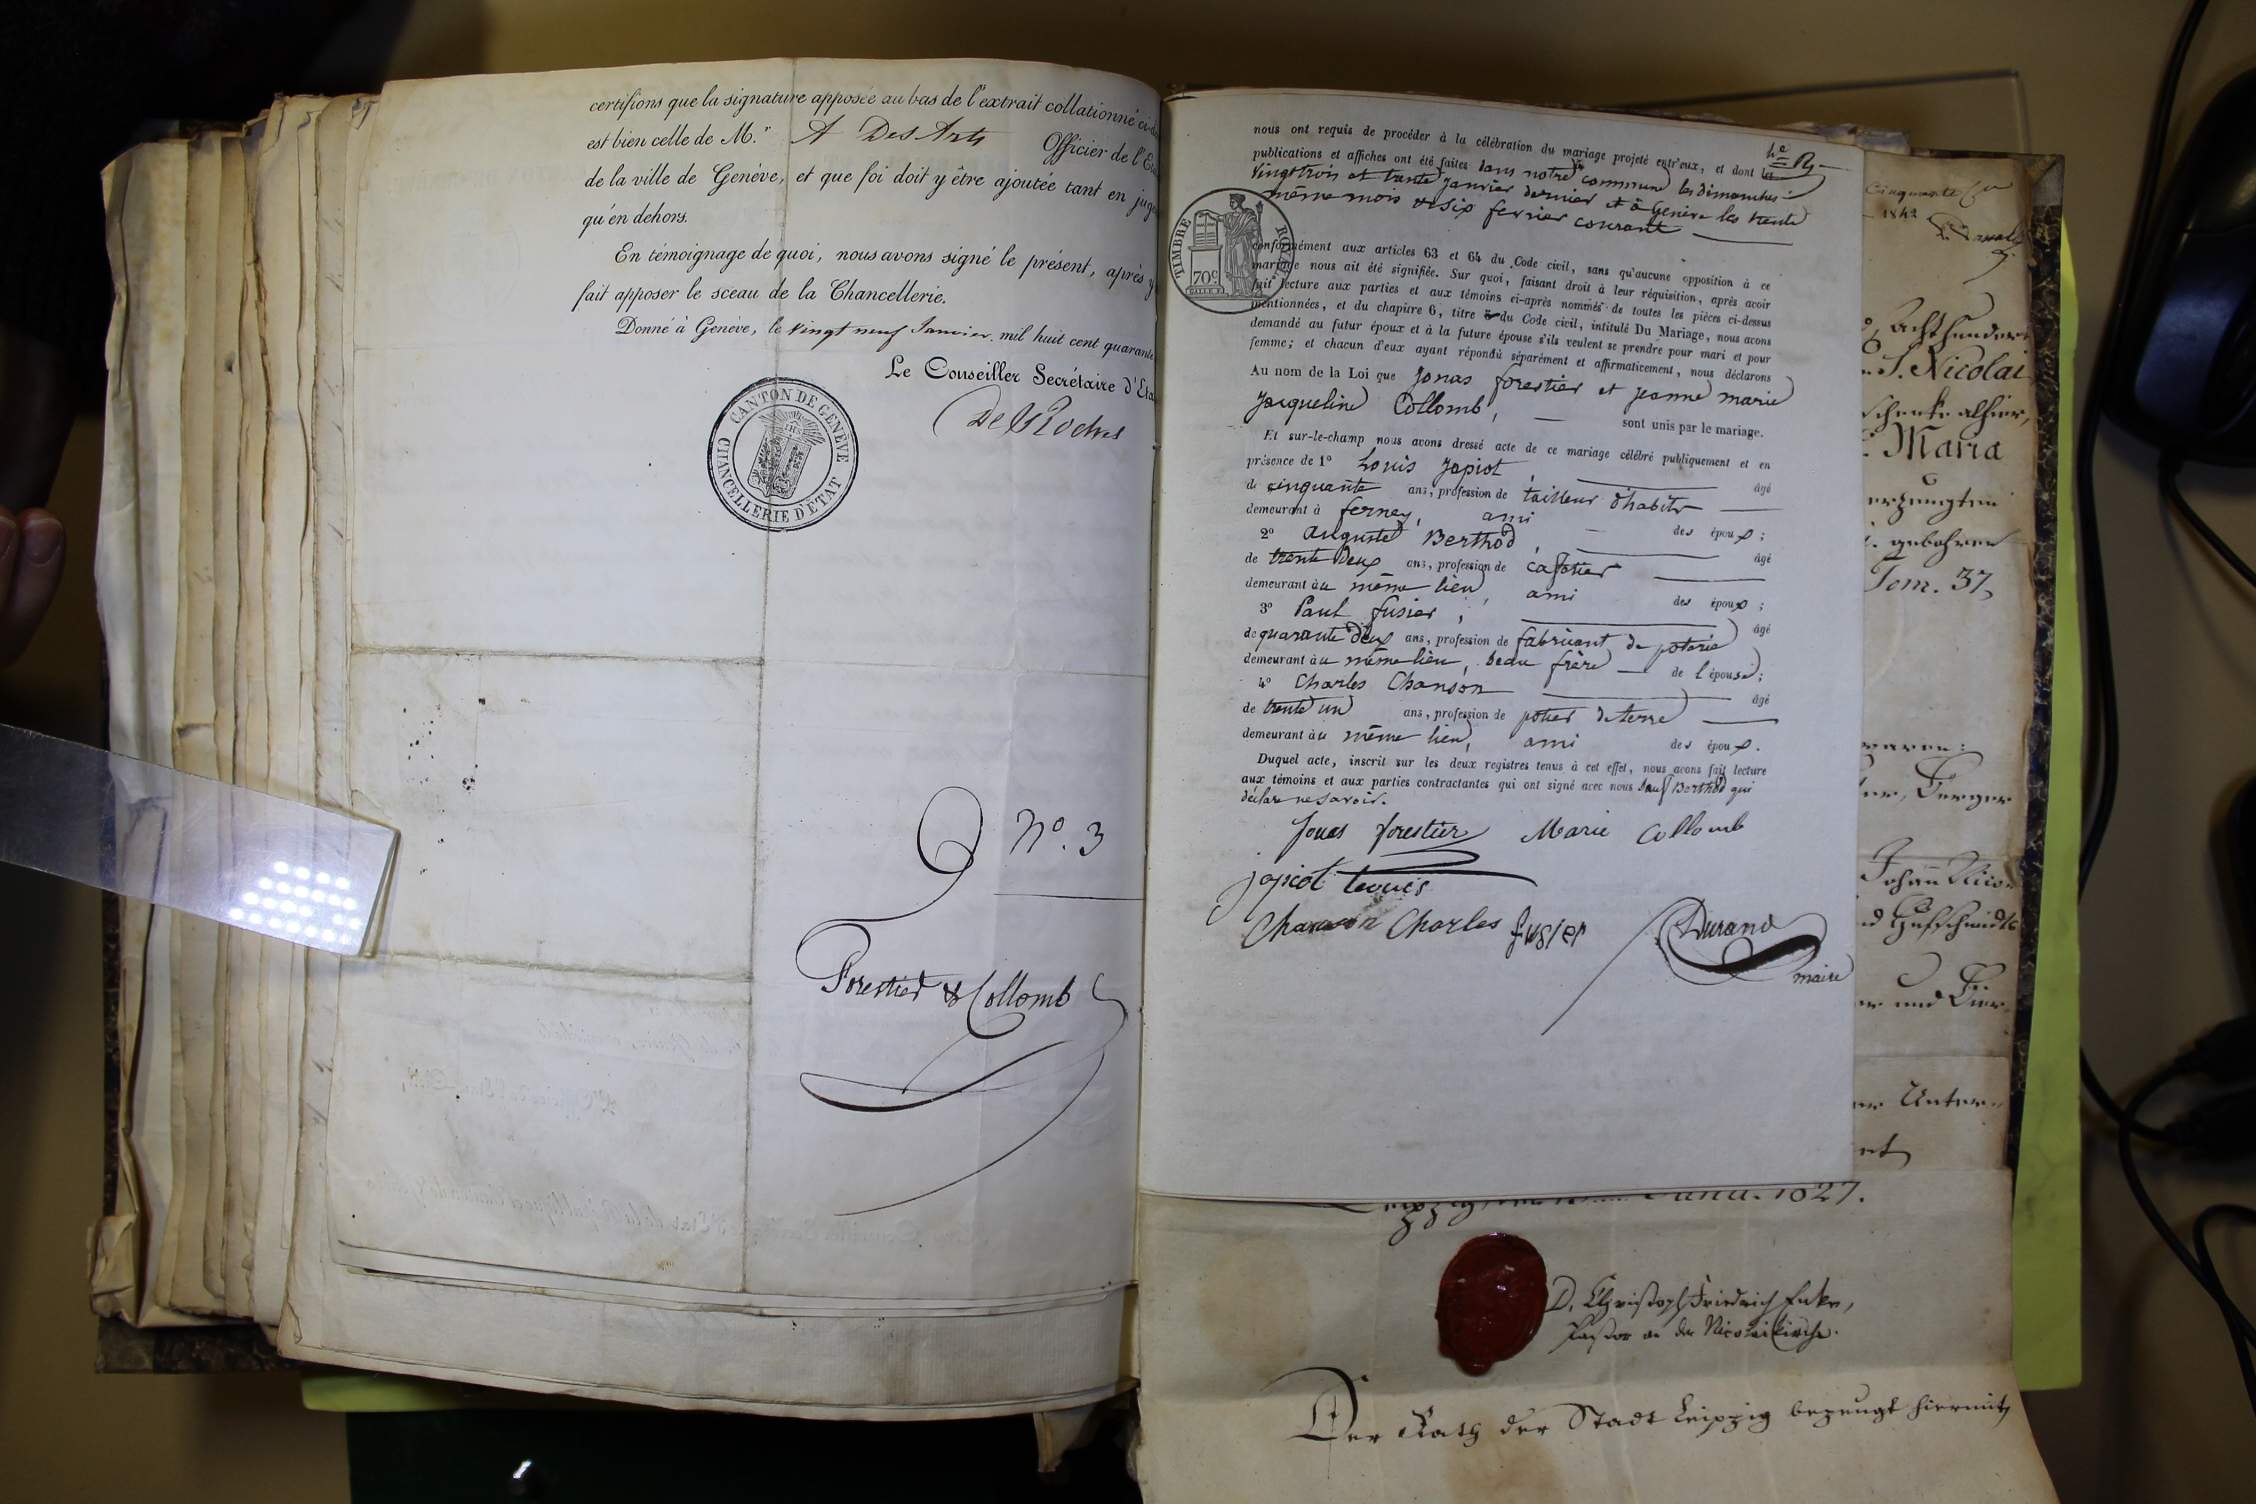 certifions que la signature apposée au bas de l'extrait collationné
est bien celle de M.r A Des Arts Officier de l'
de la ville de Genève, et que foi doit y être ajoutée tant en
qu'en dehors.
En témoignage de quoi, nous avons signé le présent, après y
fait apposer le sceau de la Chancellerie.
Donné à Genève, le vingt neuf Janvier mil huit cent quarante
Le Conseiller Secrétaire d'Eta
De Roches
CANTON DE GENÈVE
CHANCELLERIE D'ÉTAT
No. 3
Forestier & Collomb
nous ont requis de procéder à la célébration du mariage projeté entr'eux, et dont les
publications et affiches ont été faites dans notre commune les dimanches
vingt trois et trente janvier dernier et à Genève les trente
même mois et six fevrier courant
TIMBRE ROYAL
70 c.
conformément aux articles 63 et 64 du Code civil, sans qu'aucune opposition à ce
mariage nous ait été signifiée. Sur quoi, faisant droit à leur réquisition, après avoir
fait lecture aux parties et aux témoins ci-après nommés de toutes les pièces ci-dessus
mentionnées, et du chapitre 6, titre 5 du Code civil, intitulé Du Mariage, nous avons
demandé au futur époux et à la future épouse s'ils veulent se prendre pour mari et pour
femme; et chacun d'eux ayant répondu séparément et affirmativement, nous déclarons
Au nom de la Loi que Jonas forestier et jeanne marie
Jacqueline Collomb, sont unis par le mariage.
Et sur-le-champ nous avons dressé acte de ce mariage célébré publiquement et en
présence de 1° Louis Japiot, âgé
de cinquante ans, profession de tailleur d'habits
demeurant à ferney, ami des époux;
2° auguste Berthod, âgé
de trente deux ans, profession de cafetier
demeurant au même lieu, ami des époux;
3° Paul fusier, âgé
de quarante deux ans, profession de fabricant de poterie
demeurant au même lieu, beau frère de l'épouse;
4° Charles Chanson âgé
de trente un ans, profession de potier de terre
demeurant au même lieu, ami des époux.
Duquel acte, inscrit sur les deux registres tenus à cet effet, nous avons fait lecture
aux témoins et aux parties contractantes qui ont signé avec nous sauf Berthod qui
déclare ne savoir.
Jonas forestier Marie Collomb
japiot Louis
Chanson Charles fusier Durand
maire
1842
Nicolai
Maria
Tom. 37,
1827.
D. Christoph Friedrich Enke,
Pastor an der Nicolaikirche.
Der Rath der Stadt Leipzig bezeugt hiermit